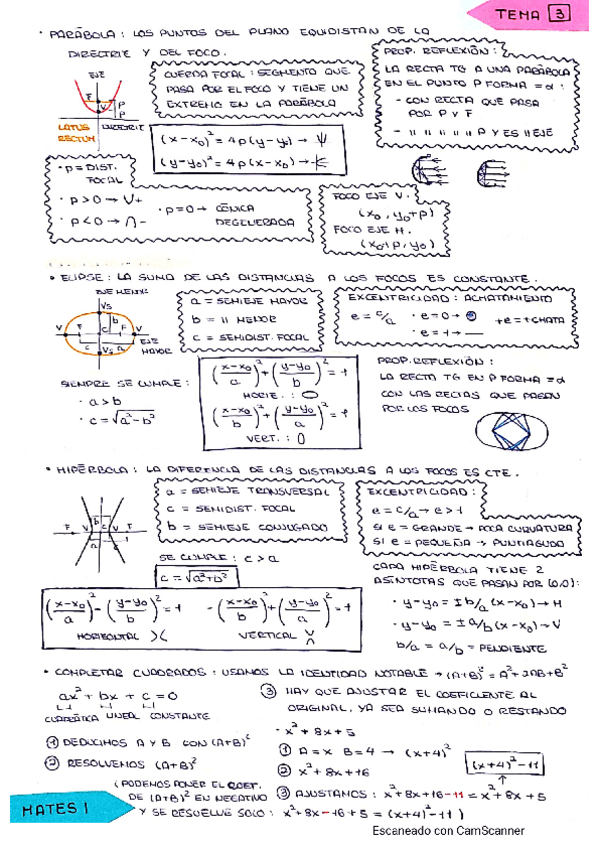 TEMA 3
• PARÁBOLA : LOS PUNTOS DEL PLANO EQUIDISTAN DE LA
DIRECTRIZ Y DEL FOCO.
EJE
F
V
P
P
LATUS
RECTUM
DIRECTRIZ
CUERDA FOCAL : SEGMENTO QUE
PASA POR EL FOCO Y TIENE UN
EXTREMO EN LA PARÁBOLA
(x-x₀)² = 4p(y-y₀) →
(y-y₀)² = 4p(x-x₀) →
PROP. REFLEXIÓN :
LA RECTA TG A UNA PARÁBOLA
EN EL PUNTO P FORMA = α :
- CON RECTA QUE PASA
POR P Y F
- '' '' '' '' '' P Y ES '' EJE
• p = DIST.
FOCAL
• p > 0 → V+
• p < 0 → ∩-
• p = 0 → CÓNICA
DEGENERADA
FOCO EJE V.
(x₀, y₀+p)
FOCO EJE H.
(x₀+p, y₀)
• ELIPSE : LA SUMA DE LAS DISTANCIAS A LOS FOCOS ES CONSTANTE.
EJE MENOR
EJE
MAYOR
a = SEMIEJE MAYOR
b = '' MENOR
c = SEMIDIST. FOCAL
EXCENTRICIDAD : ACHATAMIENTO
e = c/a
• e = 0 →
• e = 1 →
+e = +CHATA
SIEMPRE SE CUMPLE :
• a > b
• c = √a²-b²
((x-x₀)/a)² + ((y-y₀)/b)² = 1
HORIZ. :
((x-x₀)/b)² + ((y-y₀)/a)² = 1
VERT. :
PROP. REFLEXIÓN :
LA RECTA TG EN P FORMA = α
CON LAS RECTAS QUE PASAN
POR LOS FOCOS
• HIPÉRBOLA : LA DIFERENCIA DE LAS DISTANCIAS A LOS FOCOS ES CTE.
a = SEMIEJE TRANSVERSAL
c = SEMIDIST. FOCAL
b = SEMIEJE CONJUGADO
EXCENTRICIDAD :
e = c/a → e > 1
SI e = GRANDE → POCA CURVATURA
SI e = PEQUEÑA → PUNTIAGUDO
SE CUMPLE : c > a
c = √a²+b²
CADA HIPÉRBOLA TIENE 2
ASÍNTOTAS QUE PASAN POR (0,0) :
• y-y₀ = ± b/a (x-x₀) → H
• y-y₀ = ± a/b (x-x₀) → V
b/a = a/b = PENDIENTE
((x-x₀)/a)² - ((y-y₀)/b)² = 1
-((x-x₀)/b)² + ((y-y₀)/a)² = 1
HORIZONTAL
VERTICAL
• COMPLETAR CUADRADOS : USAMOS LA IDENTIDAD NOTABLE → (A+B)² = A²+2AB+B²
ax² + bx + c = 0
CUADRÁTICA LINEAL CONSTANTE
① DEDUCIMOS A Y B CON (A+B)²
② RESOLVEMOS (A+B)²
③ HAY QUE AJUSTAR EL COEFICIENTE AL
ORIGINAL, YA SEA SUMANDO O RESTANDO
• x² + 8x + 5
① A = x B = 4 → (x+4)²
② x² + 8x + 16
③ AJUSTAMOS : x² + 8x + 16 - 11 = x² + 8x + 5
(x+4)² - 11
(PODEMOS PONER EL COEF.
DE (A+B)² EN NEGATIVO
Y SE RESUELVE SOLO : x² + 8x - 16 + 5 = (x+4)² - 11)
MATES I
Escaneado con CamScanner